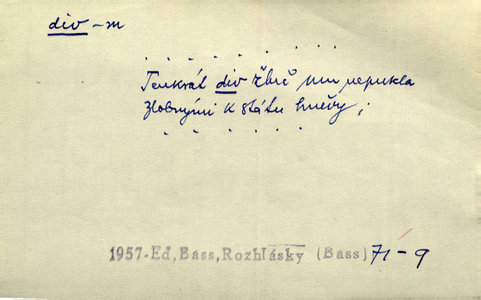 div - m
. . . . . . . . .
Tenkrát div žluč mu nepukla
zlobnými k státu hněvy;
. . . . . . .
1957-Ed,Bass,Rozhlásky (Bass) 71-9